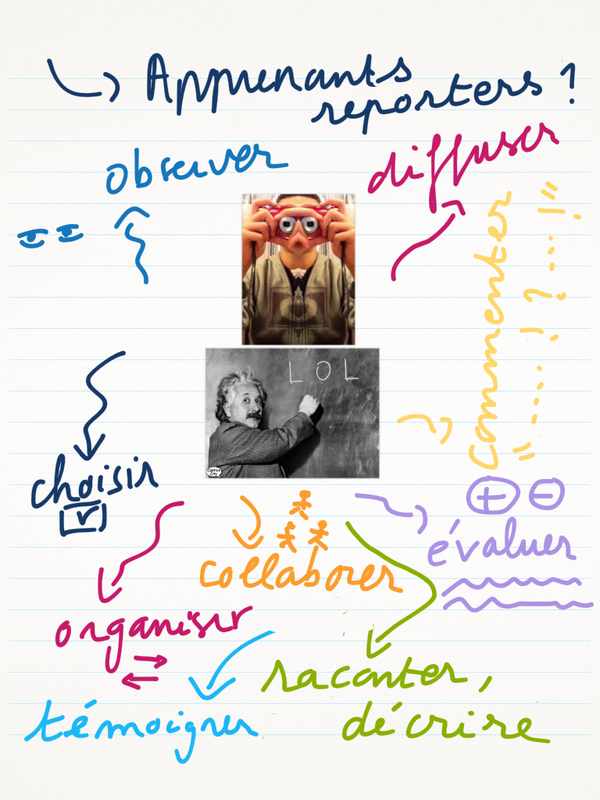 Apprenants
reporters ?
observer
diffuser
commenter
"....! ? ...!"
LOL
choisir
évaluer
collaborer
organiser
raconter,
décrire
témoigner